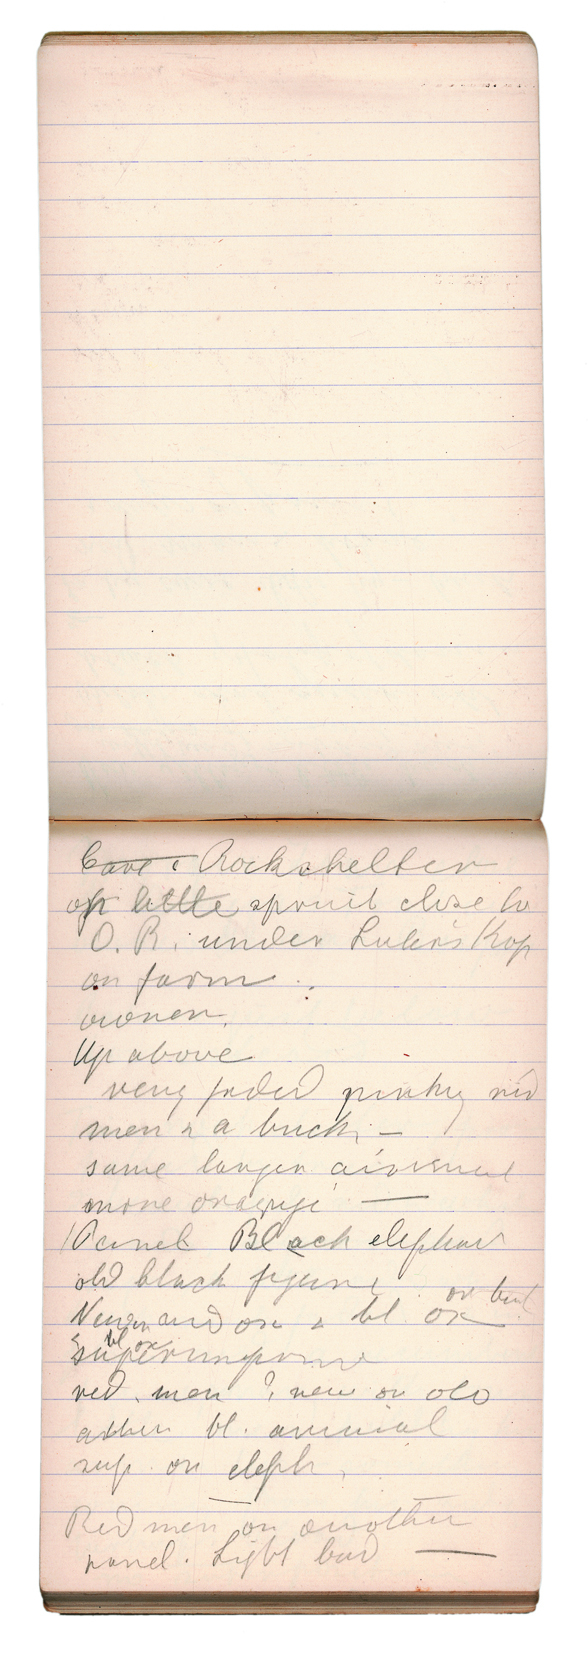 Cave & Rockshelter
off little spruit close to
O. R. under Luker's Kop
on farm . .
owner.
Up above
very faded pinky red
men & a buck; —
some larger animal
more orange —
Panel Black elephant
old black figure
Newer red ox & bl. ox or bull
bl ox
superimpose
red men ? new or old
other bl. animal
sup. on eleph.
—
Red men on another
panel. Light bad —